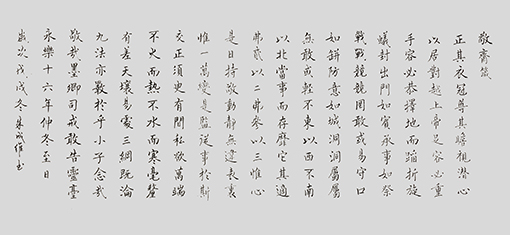 敬齋箴
正其衣冠尊其瞻視潛心
以居對越上帝足容必重
手容必恭擇地而蹈折旋
蟻封出門如賓承事如祭
戰戰兢兢罔敢或易守口
如缾防意如城洞洞屬屬
無敢或輕不東以西不南
以北當事而存靡它其適
弗貳以二弗參以三惟心
是曰持敬動靜無違表裏
惟一萬變是監從事於斯
交正須臾有間私欲萬端
不火而熱不水而寒毫釐
有差天壤易處三綱既淪
九法亦斁於乎小子念哉
敬哉墨卿司戒敢告靈臺
永樂十六年仲冬至日
歲次戊戌冬朱成